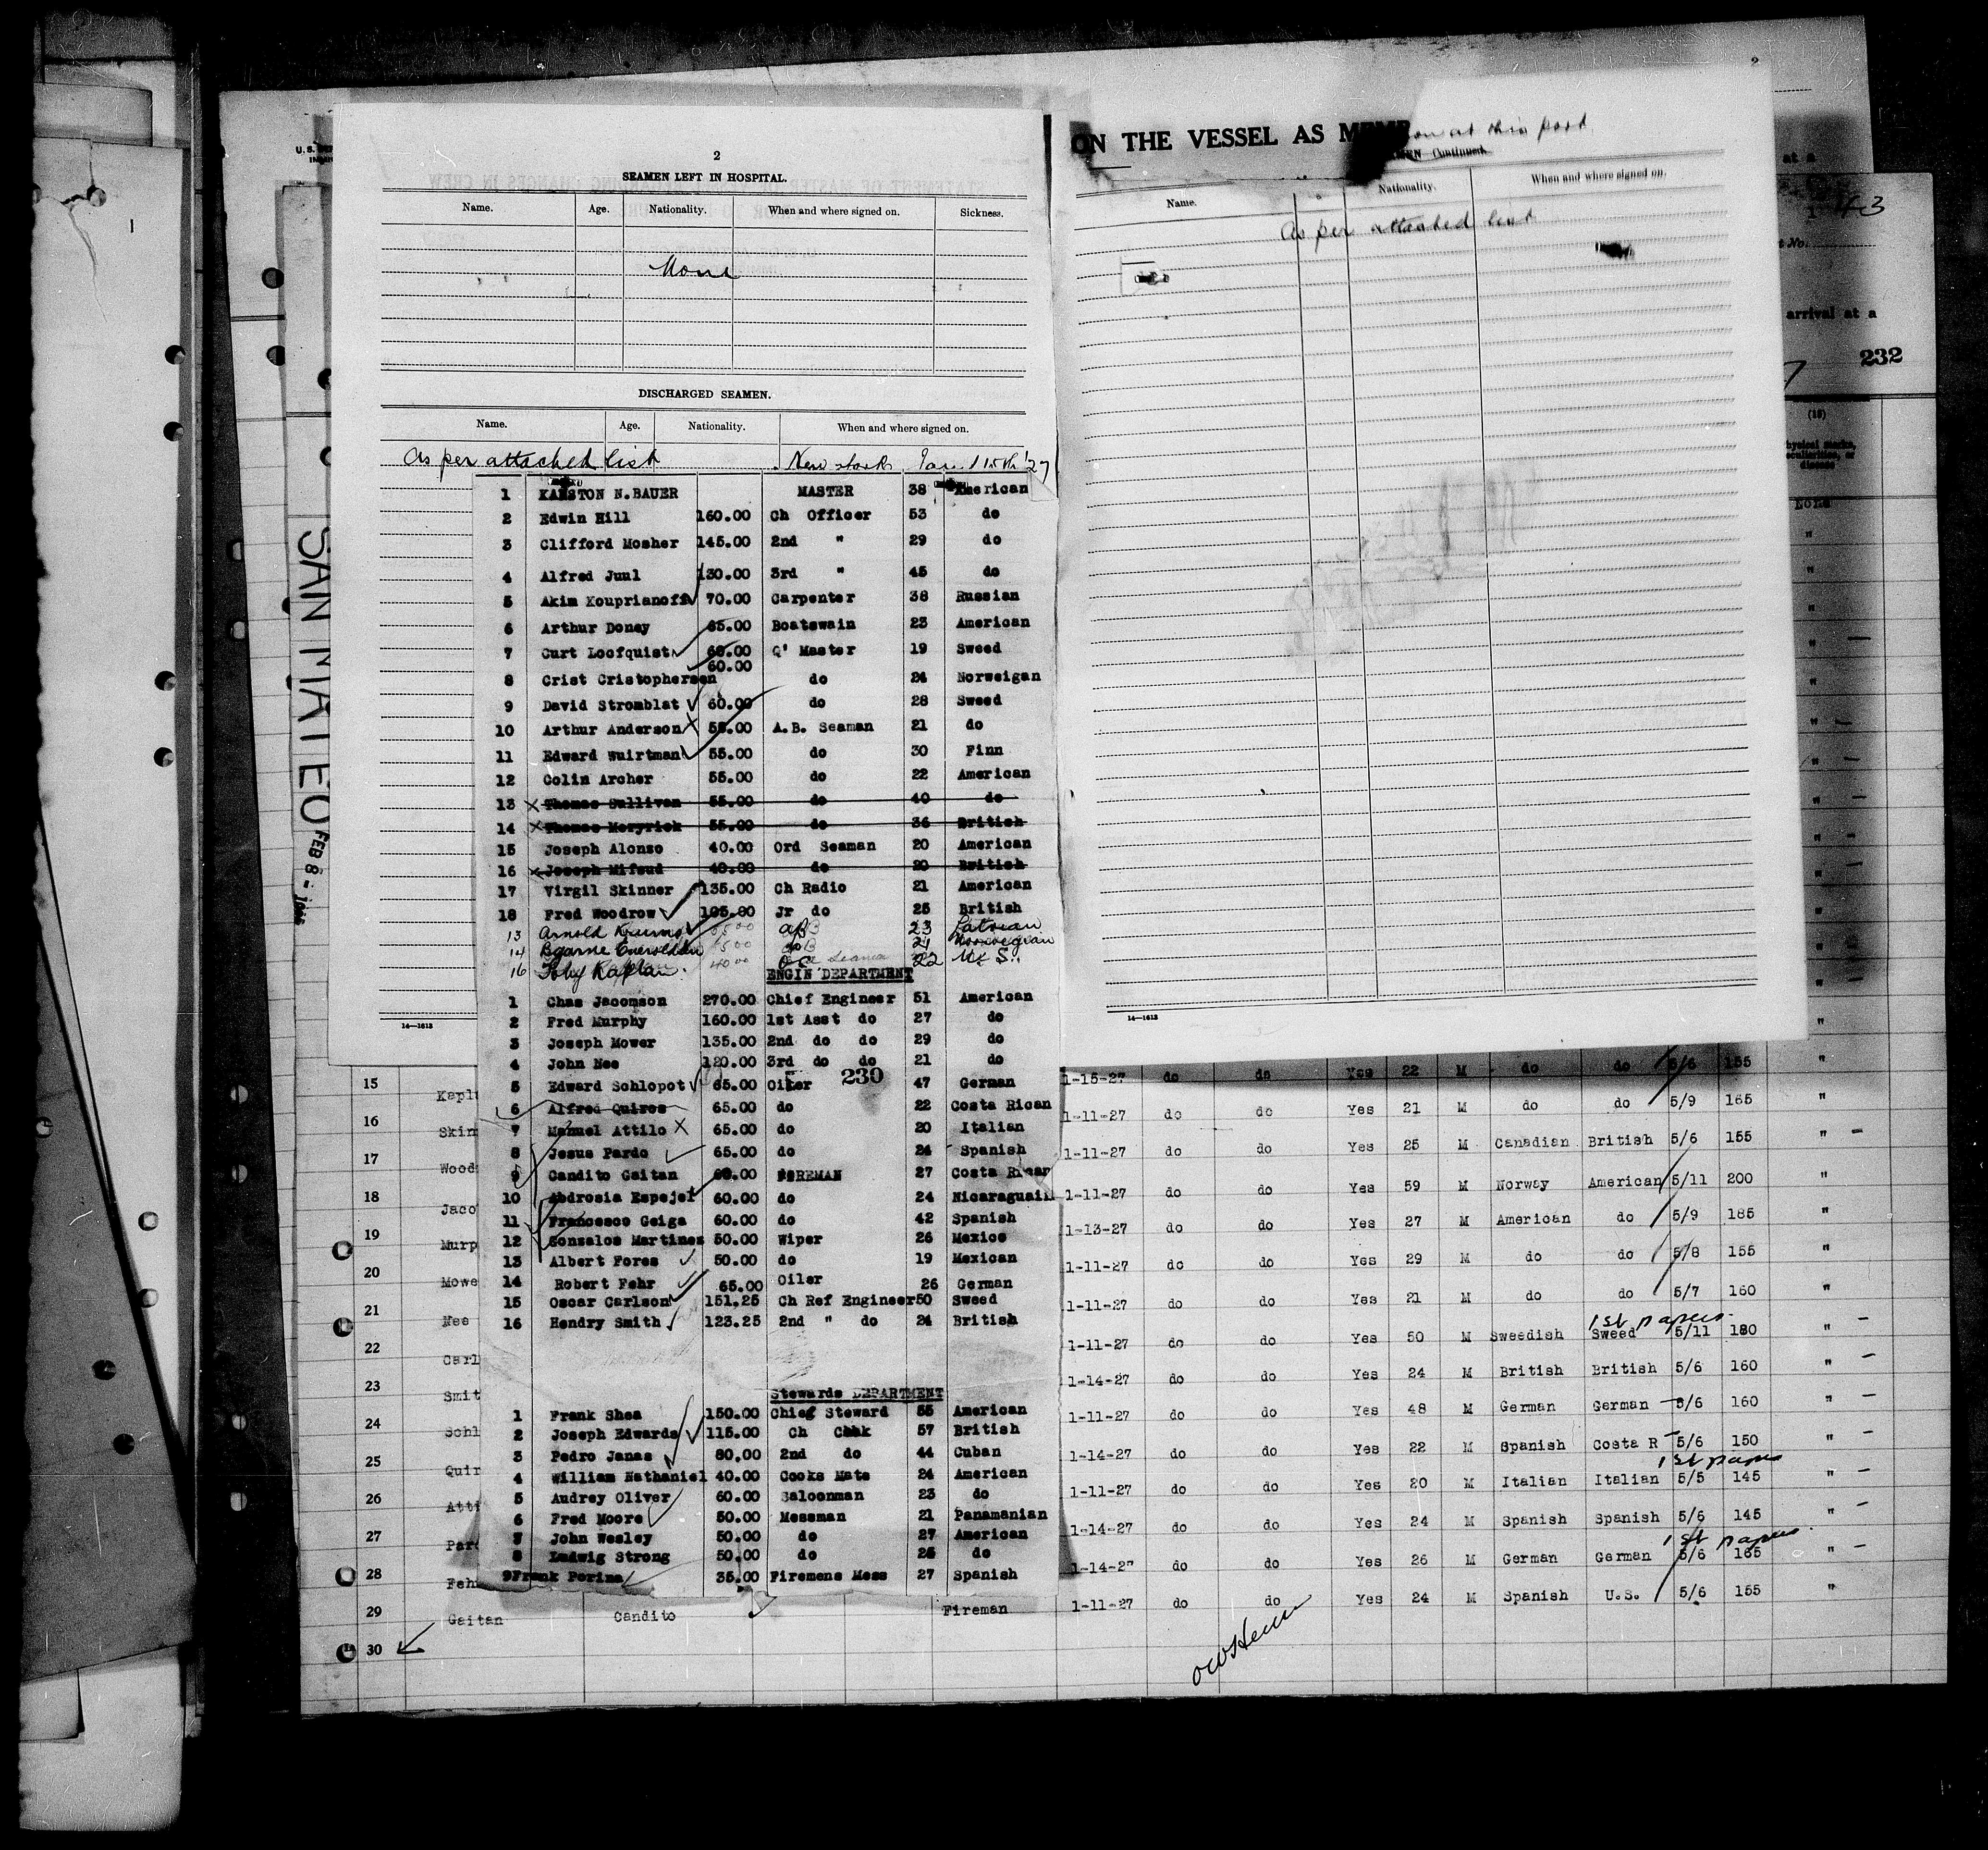 2
SEAMEN LEFT IN HOSPITAL.
Name. Age. Nationality. When and where signed on. Sickness.
None
DISCHARGED SEAMEN.
Name. Age. Nationality. When and where signed on.
As per attached list New York Jan. 11th '27
1 KARSTON N.BAUER MASTER 38 American
2 Edwin Hill 160.00 Ch Officer 53 do
3 Clifford Mosher 145.00 2nd " 29 do
4 Alfred Juul 130.00 3rd " 45 do
5 Akim Kouprianoff 70.00 Carpenter 38 Russian
6 Arthur Doney 65.00 Boatswain 23 American
7 Curt Loofquist 60.00 Q' Master 19 Sweed
60.00
8 Crist Cristophersen do 24 Norweigan
9 David Stromblat 60.00 do 28 Sweed
10 Arthur Anderson 55.00 A.B. Seaman 21 do
11 Edward Wuirtman 55.00 do 30 Finn
12 Colin Archer 55.00 do 22 American
13 Thomas Sullivan 55.00 do 40 do
14 Thomas Meryrick 55.00 do 36 British
15 Joseph Alonzo 40.00 Ord Seaman 20 American
16 Joseph Mifsud 40.00 do 20 British
17 Virgil Skinner 135.00 Ch Radio 21 American
18 Fred Woodrow 105.00 Jr do 25 British
13 Arnold 23 Latvian
14 Bjarne do 21 Norwegian
16 Toby Kaplan 40 00 OS 22 U.S.
ENGIN DEPARTMENT
1 Chas Jacomson 270.00 Chief Engineer 51 American
2 Fred Murphy 160.00 1st Asst do 27 do
3 Joseph Mower 135.00 2nd do do 29 do
4 John Nee 120.00 3rd do do 21 do
230
5 Edward Schlopot 65.00 Oiler 47 German
6 Alfred Quiros 65.00 do 22 Costa Rican
7 Manuel Attilo 65.00 do 20 Italian
8 Jesus Pardo 65.00 do 24 Spanish
9 Candito Gaitan 60.00 FIREMAN 27 Costa Rican
10 Abdrosia Espejel 60.00 do 24 Nicaraguain
11 Francesco Geiga 60.00 do 42 Spanish
12 Gonzalos Martinez 50.00 Wiper 26 Mexico
13 Albert Fores 50.00 do 19 Mexican
14 Robert Fehr 65.00 Oiler 26 German
15 Oscar Carlson 151.25 Ch Ref Engineer 50 Sweed
16 Hendry Smith 123.25 2nd " do 24 British
Stewards DEPARTMENT
1 Frank Shea 150.00 Chief Steward 55 American
2 Joseph Edwards 115.00 Ch Cook 57 British
3 Pedro Janas 80.00 2nd do 44 Cuban
4 William Nathaniel 40.00 Cooks Mate 24 American
5 Audrey Oliver 60.00 Saloonman 23 do
6 Fred Moore 50.00 Messman 21 Panamanian
7 John Wesley 50.00 do 27 American
8 Ludwig Strong 50.00 do 25 do
9 Frank Perina 35.00 Firemens Mess 27 Spanish
14—1613
ON THE VESSEL AS MEMB
on at this port
Continued.
Name. Nationality. When and where signed on.
As per attached list
14—1613
2
at a
43
t No.
arrival at a
232
(16)
physical marks, peculiarities, or disease
None
SAN MATEO
FEB 8 -
U. S. DE
15 Kapl 1-15-27 do do Yes 22 M do do 5/6 155 "
16 Skin 1-11-27 do do Yes 21 M do do 5/9 165 "
17 Wood 1-11-27 do do Yes 25 M Canadian British 5/6 155 "
18 Jaco 1-11-27 do do Yes 59 M Norway American 5/11 200 "
19 Murp 1-13-27 do do Yes 27 M American do 5/9 185 "
20 Mowe 1-11-27 do do Yes 29 M do do 5/8 155 "
21 Nee 1-11-27 do do Yes 21 M do do 5/7 160 "
1st papers
22 Carl 1-11-27 do do Yes 50 M Swedish Sweed 5/11 180 "
23 Smit 1-14-27 do do Yes 24 M British British 5/6 160 "
24 Schl 1-11-27 do do Yes 48 M German German 5/6 160 "
25 Quir 1-14-27 do do Yes 22 M Spanish Costa R 5/6 150 "
1st papers
26 Atti 1-11-27 do do Yes 20 M Italian Italian 5/5 145 "
27 Pard 1-14-27 do do Yes 24 M Spanish Spanish 5/6 145 "
1st papers
28 Feh 1-14-27 do do Yes 26 M German German 5/6 165 "
29 Gaitan Candito Fireman 1-11-27 do do Yes 24 M Spanish U.S. 5/6 155 "
30